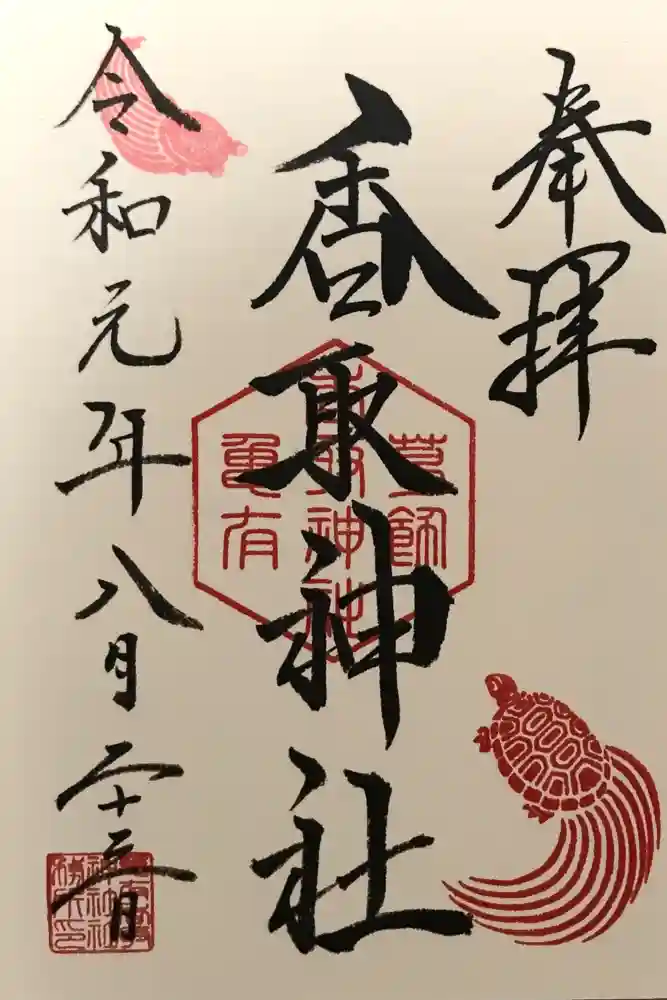 奉拝
香取神社
葛飾
香取神社
亀有
令和元年八月二十三日